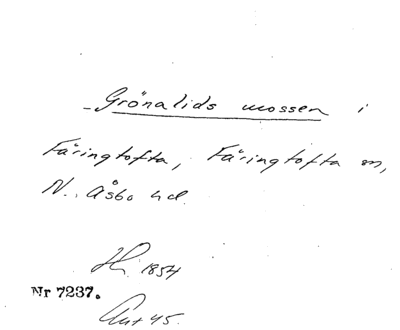 Grönalids mossen i
Färingtofta, Färingtofta sn,
N. Åsbo hd.
H. 1854
Nr 7237.
Ant 45.